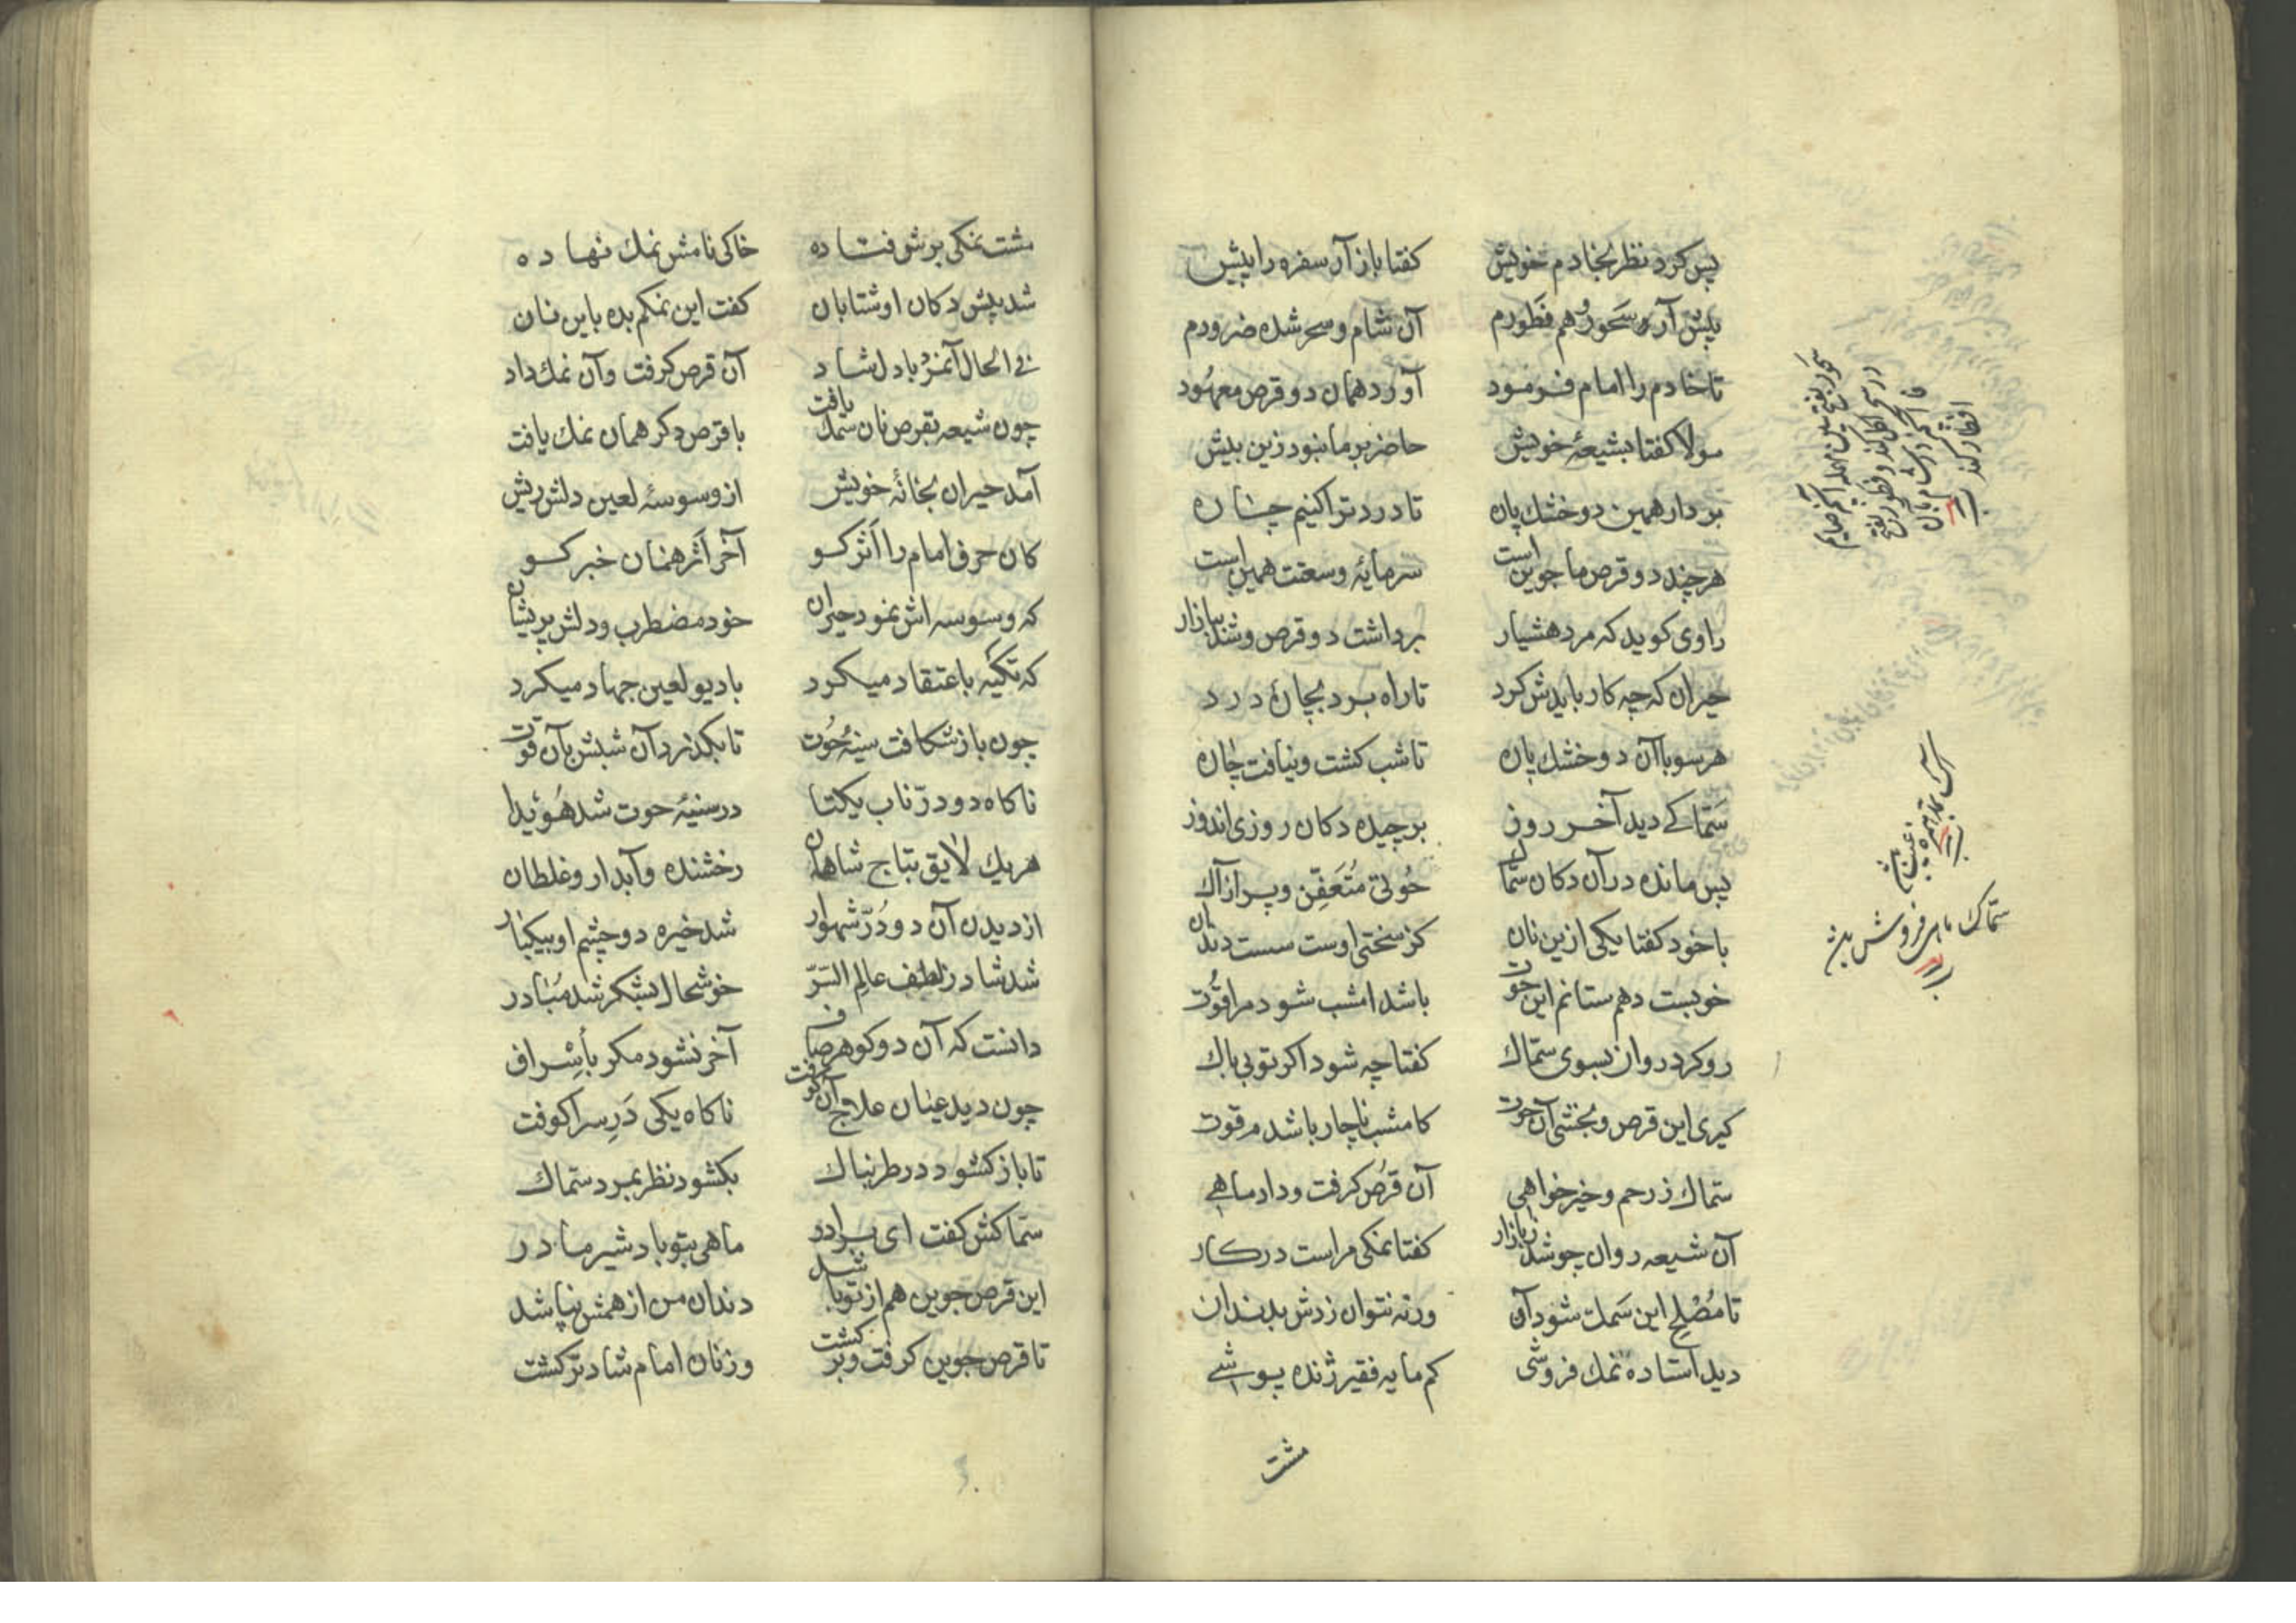 پس کرد نظر بخادم خویش کفتا باز آر سفره را پیش
پیش آر سَحور و هم فَطورم آن شام و سحر شده ضرورم
تا خادم را امام فرمود آورد همان دو قرص معهود
مولا کفتا بشیعهٔ خویش حاضر بر ما نبود زین بیش
بردار همین دو خشک پان تا درد ترا کنیم چاره
هرچند دو قرص ما جوین است سرمایهٔ وسعتت همین است
راوی کوید که مرد هشیار برداشت دو قرص و شد ببازار
حیران که چه کار بایدش کرد تا راه برد بچارهٔ درد
هر سو با آن دو خشک پان تا شب کشت و نیافت چاره
سَمّاکے دید آخر روز برچیده دکان روزی اندوز
پس مانده در آن دکان سمّاک حُوتی مُتَعَفِّن و پر از آک
با خود کفتا یکی ازین نان کز سختی اوست سست دندان
خوبست دهم ستانم این حوت باشد امشب شود مرا قُوت
رو کرد روان بسوی سمّاک کفتا چه شود اکر تو بی باک
کیری این قرص و بخشی آن حوت کامشب ناچار باشدم قوت
سمّاک ز رحم و خیرخواهی آن قُرص کرفت و داد ماهے
آن شیعه روان چو شد ز بازار کفتا نمکی مراست درکار
تا مُصْلِح این سَمک شود آن ورنه نتوان زدش بدندان
دید استاده نمک فروشی کم مایه فقیر ژنده پوشے
مشت
سحور بفتح سین مهمله آنچه صایم
در سحر اکل کند و فطور بفتح
فا آنچه در شام بآن
افطار کند
سمّاک ماهی فروش
مشت نمکی برش فتاده خاکی نامش نمک نهاده
شد پیش دکان او شتابان کفت این نمکم بده باین نان
فی الحال آنمرد با دل شاد آن قرص کرفت و آن نمک داد
چون شیعه بقرص نان سمک یافت با قرص دکر همان نمک یافت
آمد حیران بخانهٔ خویش از وسوسهٔ لعین دلش ریش
کان حرف امام را اَثَر کو آخر اَثَر همنان خبر کو
که وسوسه اش نمود حیران خود مضطرب و دلش پریشان
که تکیه باعتقاد میکرد با دیو لعین جهاد میکرد
چون باز شکافت سینهٔ حُوت تا بکذرد آن شبش بآن قوت
ناکاه دو درّ ناب یکتا در سینهٔ حوت شد هُوَیدا
هر یک لایق بتاج شاهان رخشنده و آبدار و غلطان
از دیدن آن دو دُرّ شهوار شد خیره دو چشم او بیکبار
شد شاد ز لطف عالم السّرّ خوشحال بشکر شد مُبادر
دانست که آن دو کوهر صاف آخر نشود مکر بأَِشراف
چون دید عیان علاج ناکاه یکی دَرِ سرا کوفت
تا باز کشود در طربناک بکشود نظر بمرد سمّاک
سمّاکش کفت ای برادر ماهی بتو باد شیر مادر
این قرص جوین هم از تو باشد دندان من از همش نپاشد
تا قرص جوین کرفت و برکشت وز نان امام شادتر کشت